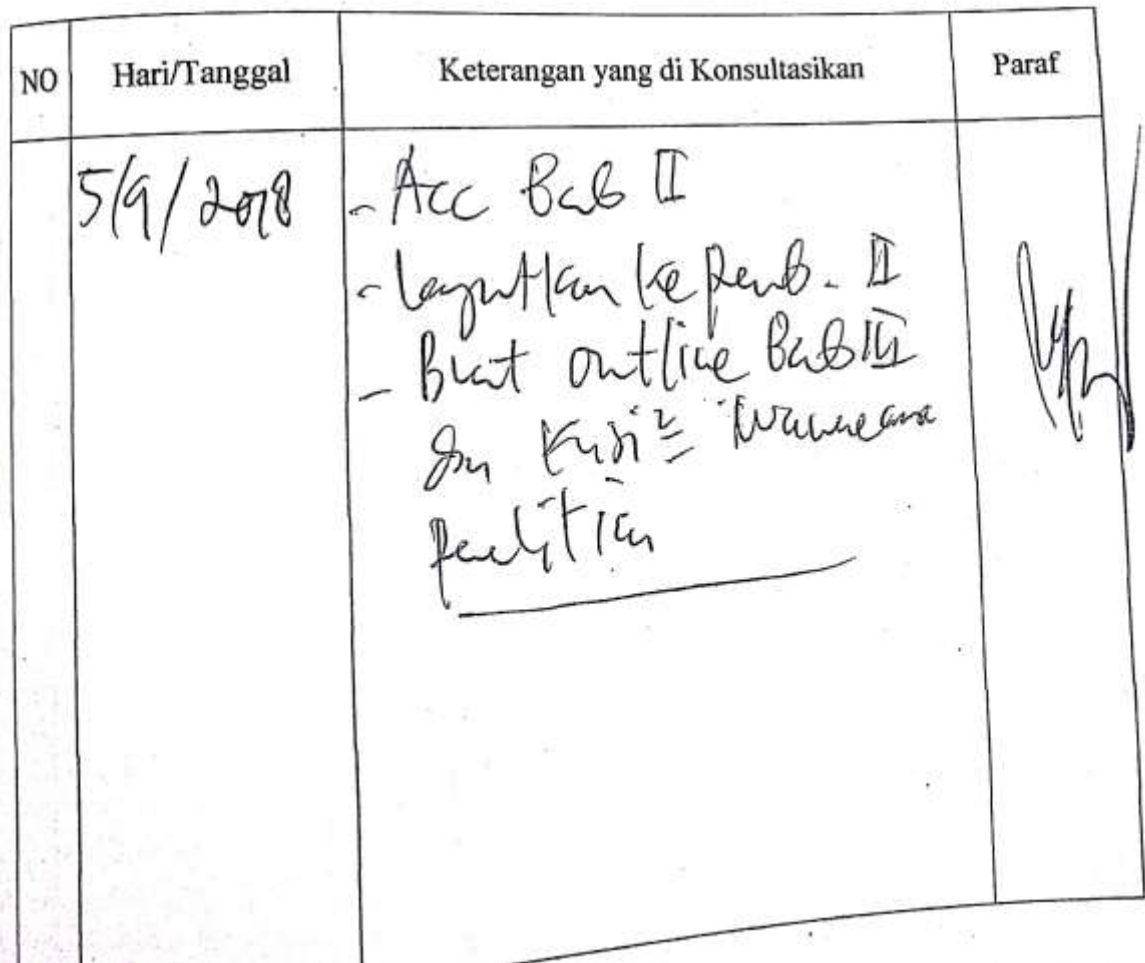 NO Hari/Tanggal Keterangan yang di Konsultasikan Paraf
5/9/2018 - Acc Bab II
- Lanjutkan ke Pemb. II
- Buat outline Bab III
dan Kisi² Wawancara
penelitian